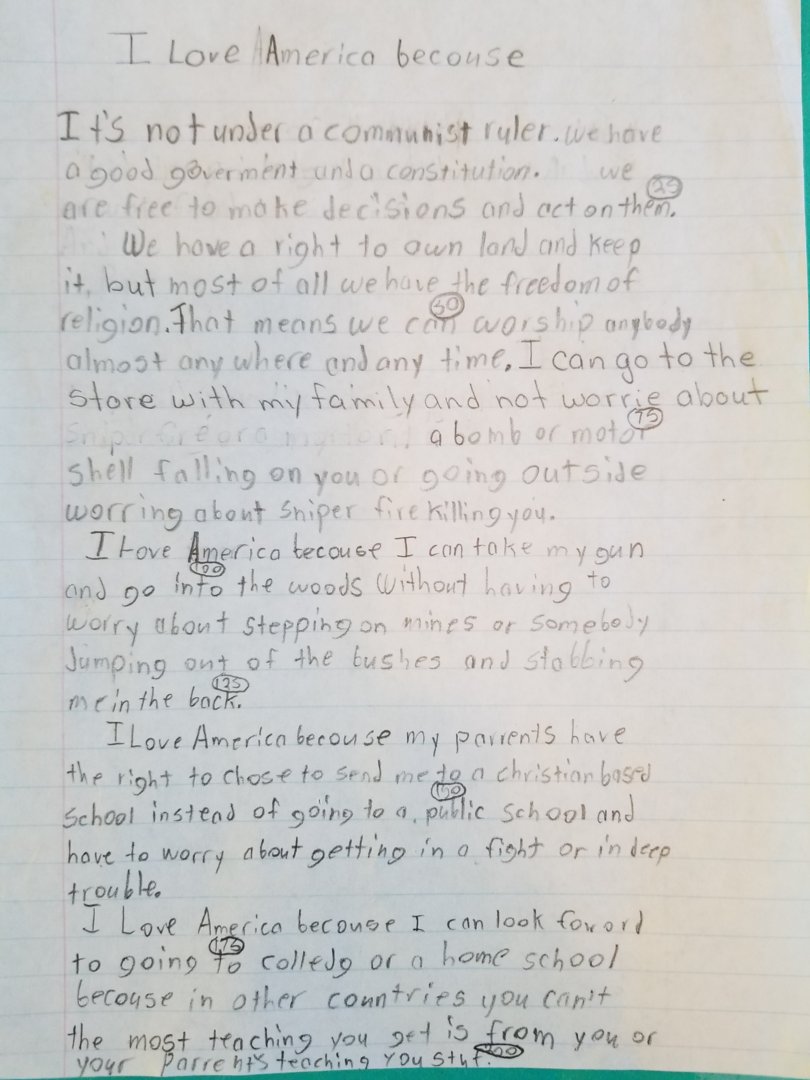 I Love America becouse
It's not under a communist ruler. we have
a good goverment and a constitution. we
25
are free to make decisions and act on them.
We have a right to own land and keep
it, but most of all we have the freedom of
50
religion. That means we can worship anybody
almost any where and any time. I can go to the
store with my family and not worrie about
75
a bomb or motor
shell falling on you or going outside
worring about sniper fire killing you.
I Love America becouse I can take my gun
100
and go into the woods without having to
worry about stepping on mines or somebody
Jumping out of the bushes and stabbing
125
me in the back.
I Love America becouse my parrents have
the right to chose to send me to a christian based
150
school instead of going to a public school and
have to worry about getting in a fight or in deep
trouble.
I Love America becouse I can look foword
175
to going to colledg or a home school
becouse in other countries you can't
the most teaching you get is from you or
200
your Parrents teaching you stuf.